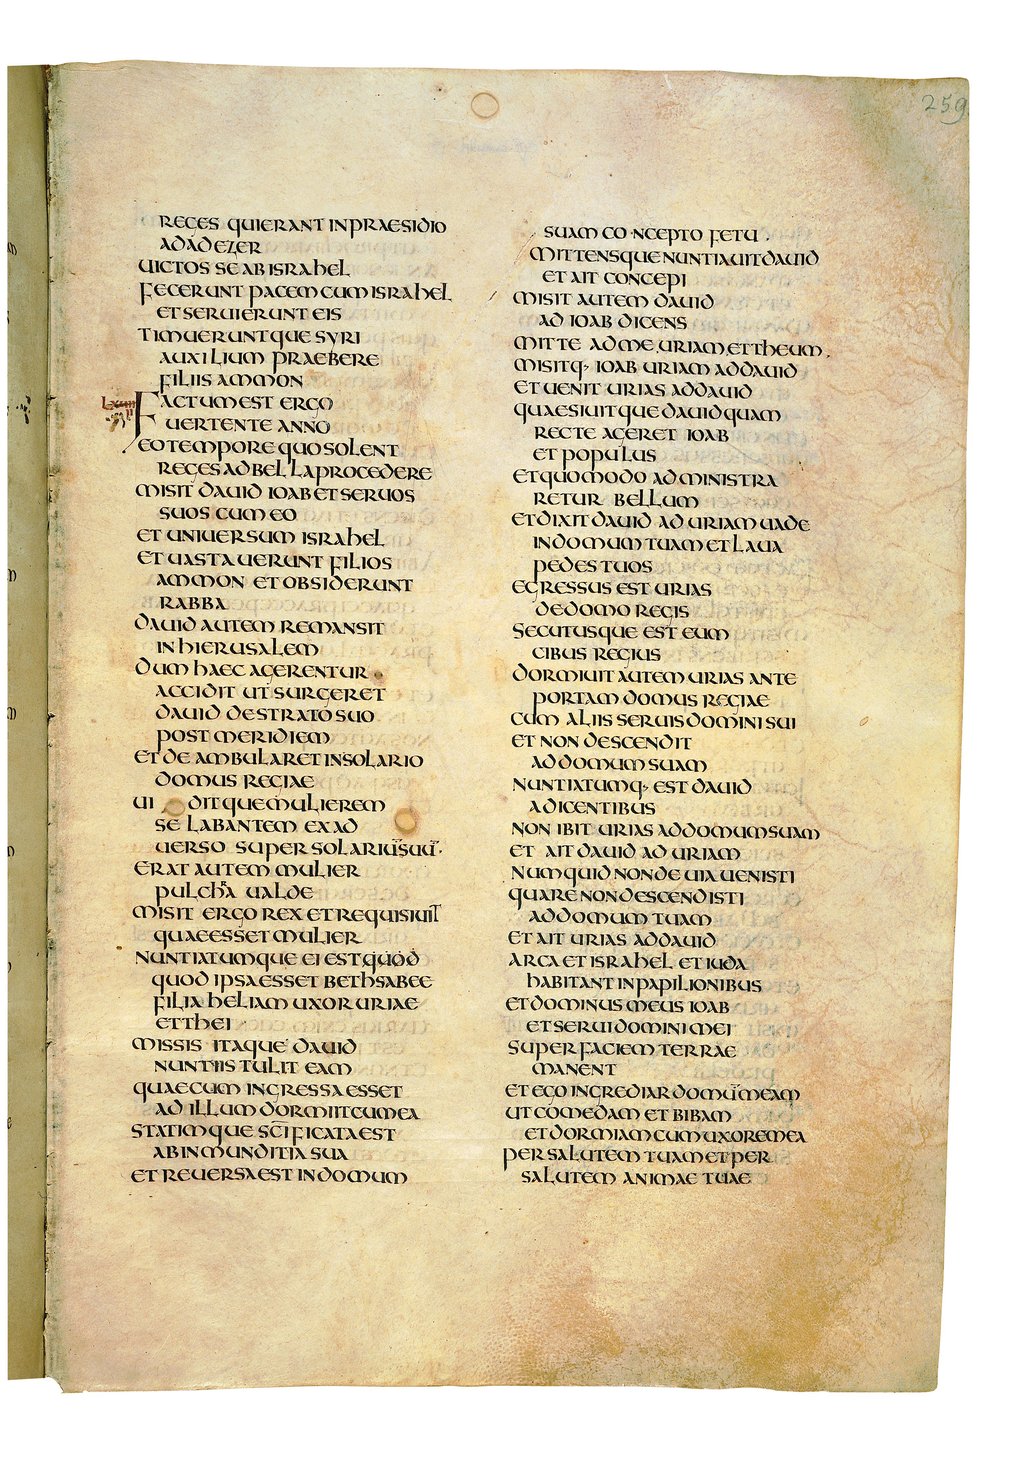 259
REGES QUI ERANT IN PRAESIDIO
ADADEZER
UICTOS SE AB ISRAHEL
FECERUNT PACEM CUM ISRAHEL
ET SERUIERUNT EIS
TIMUERUNTQUE SYRI
AUXILIUM PRAEBERE
FILIIS AMMON
FACTUM EST ERGO
UERTENTE ANNO
EO TEMPORE QUO SOLENT
REGES AD BELLA PROCEDERE
MISIT DAUID IOAB ET SERUOS
SUOS CUM EO
ET UNIUERSUM ISRAHEL
ET UASTAUERUNT FILIOS
AMMON ET OBSIDERUNT
RABBA
DAUID AUTEM REMANSIT
IN HIERUSALEM
DUM HAEC AGERENTUR
ACCIDIT UT SURGERET
DAUID DE STRATO SUO
POST MERIDIEM
ET DEAMBULARET IN SOLARIO
DOMUS REGIAE
UIDITQUE MULIEREM
SE LABANTEM EX AD
UERSO SUPER SOLARIŪ SUŪ.
ERAT AUTEM MULIER
PULCHRA UALDE
MISIT ERGO REX ET REQUISIUIT
QUAE ESSET MULIER
NUNTIATUMQUE EI EST QUOD
QUOD IPSA ESSET BETHSABEE
FILIA HELIAM UXOR URIAE
ETTHEI
MISSIS ITAQUE DAUID
NUNTIIS TULIT EAM
QUAE CUM INGRESSA ESSET
AD ILLUM DORMIIT CUM EA
STATIMQUE SCIFICATA EST
AB INMUNDITIA SUA
ET REUERSA EST IN DOMUM
SUAM CONCEPTO FETU.
MITTENSQUE NUNTIAUIT DAUID
ET AIT CONCEPI
MISIT AUTEM DAUID
AD IOAB DICENS
MITTE AD ME URIAM ETTHEUM.
MISITQ· IOAB URIAM AD DAUID
ET UENIT URIAS AD DAUID
QUAESIUITQUE DAUID QUAM
RECTE AGERET IOAB
ET POPULUS
ET QUOMODO ADMINISTRA
RETUR BELLUM
ET DIXIT DAUID AD URIAM UADE
IN DOMUM TUAM ET LAUA
PEDES TUOS
EGRESSUS EST URIAS
DE DOMO REGIS
SECUTUSQUE EST EUM
CIBUS REGIUS
DORMIUIT AUTEM URIAS ANTE
PORTAM DOMUS REGIAE
CUM ALIIS SERUIS DOMINI SUI
ET NON DESCENDIT
AD DOMUM SUAM
NUNTIATUMQ· EST DAUID
A DICENTIBUS
NON IBIT URIAS AD DOMUM SUAM
ET AIT DAUID AD URIAM
NUMQUID NON DE UIA UENISTI
QUARE NON DESCENDISTI
AD DOMUM TUAM
ET AIT URIAS AD DAUID
ARCA ET ISRAHEL ET IUDA
HABITANT IN PAPILIONIBUS
ET DOMINUS MEUS IOAB
ET SERUI DOMINI MEI
SUPER FACIEM TERRAE
MANENT
ET EGO INGREDIAR DOMŪ MEAM
UT COMEDAM ET BIBAM
ET DORMIAM CUM UXORE MEA
PER SALUTEM TUAM ET PER
SALUTEM ANIMAE TUAE